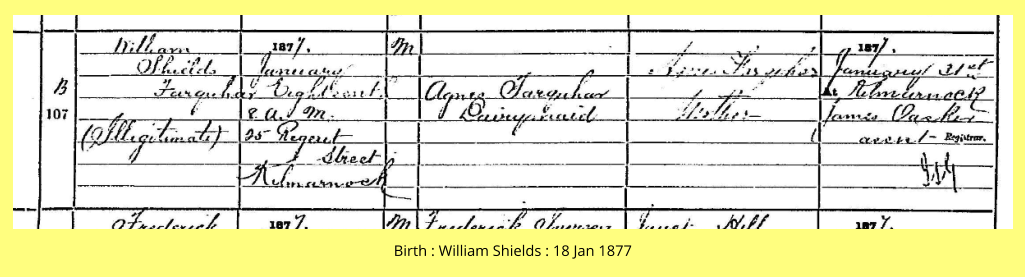 William
Shields
Farquhar
B
107
(Illegitimate)
1877.
January
Eighteenth
8 A. M.
25 Regent
Street
Kilmarnock
M
Agnes Farquhar
Dairymaid
Agnes Farquhar
Mother
1877.
January 31st
At Kilmarnock
James
Registrar.
Frederick
1877.
M
Frederick
Janet Hill
1877.
Birth : William Shields : 18 Jan 1877